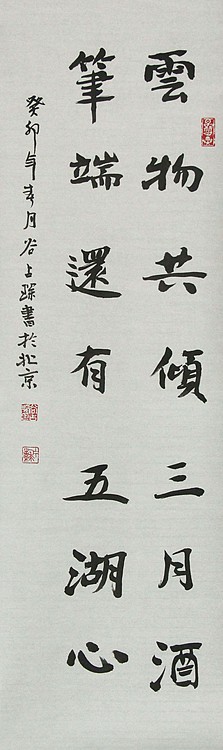 雲物共傾三月酒
筆端還有五湖心
癸卯年春月谷占琛書於北京